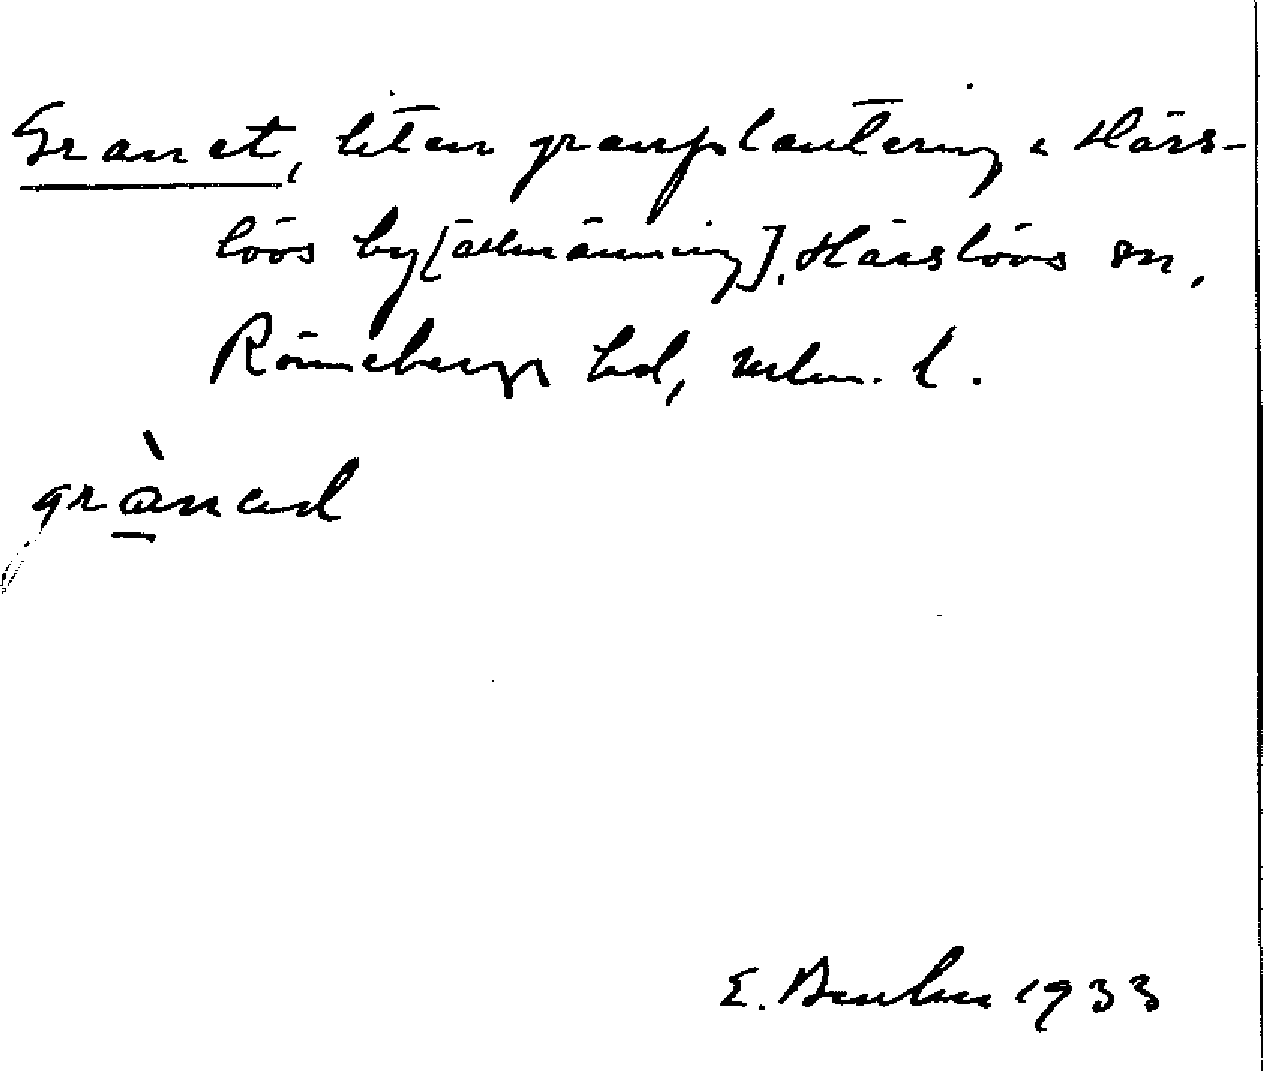 Granet, liten granplantering i Härs-
lövs by [allmänning]. Härslövs sn,
Rönnebergs hd, Mlm. l.
grànəd
E. 1933